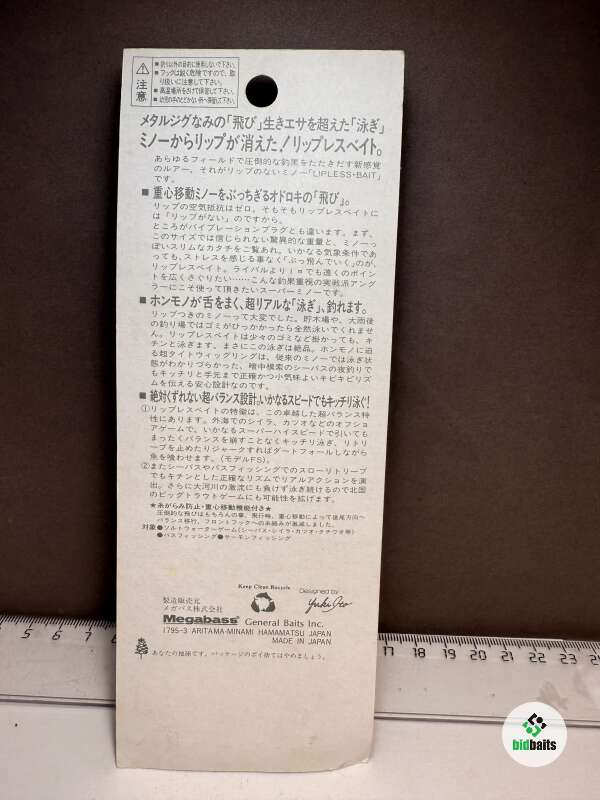 注意
■釣り以外の目的に使用しないで下さい。
■フックは鋭く危険ですので、取り扱いに注意して下さい。
■高温場所をさけて保管して下さい。
■幼児の手のとどかない所へ保管して下さい。
メタルジグなみの「飛び」生きエサを超えた「泳ぎ」
ミノーからリップが消えた！リップレスベイト。
あらゆるフィールドで圧倒的な釣果をたたきだす新感覚
のルアー。それがリップのないミノー「LIPLESS・BAIT」
です。
■重心移動ミノーをぶっちぎるオドロキの「飛び」。
リップの空気抵抗はゼロ。そもそもリップレスベイトに
は「リップがない」のですから、
ところがバイブレーションプラグとも違います。まず、
このサイズでは信じられない驚異的な重量と、ミノーっ
ぽいスリムなカタチをご覧あれ。いかなる気象条件であ
っても、ストレスを感じる事なく「ぶっ飛んでいく」のが、
リップレスベイト。ライバルより1mでも遠くのポイン
トを広くさぐりたい……こんな釣果重視の実戦派アング
ラーにこそ使って頂きたいスーパーミノーです。
■ホンモノが舌をまく、超リアルな「泳ぎ」、釣れます。
リップつきのミノーって大変でした。貯木場や、大雨後
の釣り場ではゴミがひっかかったら全然泳いでくれませ
ん。リップレスベイトは少々のゴミなど掛かっても、キ
チンと泳ぎます。まさにこの泳ぎは絶品。ホンモノに迫
る超タイトウィッグリングは、従来のミノーでは泳ぎ状
態がわかりづらかった、暗中模索のシーバスの夜釣りで
もキッチリと手元まで正確かつ小気味よいキビキビリズ
ムを伝える安心設計なのです。
■絶対くずれない超バランス設計。いかなるスピードでもキッチリ泳ぐ！
①リップレスベイトの特徴は、この卓越した超バランス特
性にあります。外海でのシイラ、カツオなどのオフショ
アゲームで、いかなるスーパーハイスピードで引いても
まったくバランスを崩すことなくキッチリ泳ぎ、リトリ
ーブを止めたりジャークすればダートフォールしながら
魚を喰わせます。（モデルFS）。
②またシーバスやバスフィッシングでのスローリトリーブ
でもキチンとした正確なリズムでリアルアクションを演
出。さらに大河川の激流にも負けず泳ぎ続けるので北国
のビッグトラウトゲームにも可能性を拡げます。
★糸がらみ防止・重心移動機能付き★
圧倒的な飛びはもちろんの事、飛行時、重心移動によって後尾方向へ
バランス移行、フロントフックへの糸絡みが激減しました。
対象●ソルトウォーターゲーム（シーバス・シイラ・カツオ・タチウオ等）
●バスフィッシング●サーモンフィッシング
Keep Clean Recycle
Designed by
Yuki Ito
製造販売元
メガバス株式会社
Megabass General Baits Inc.
1795-3 ARITAMA-MINAMI HAMAMATSU JAPAN
MADE IN JAPAN
あなたの地球です。パッケージのポイ捨てはやめましょう。
5 6 7 17 18 19 20 21 22 23
bidbaits